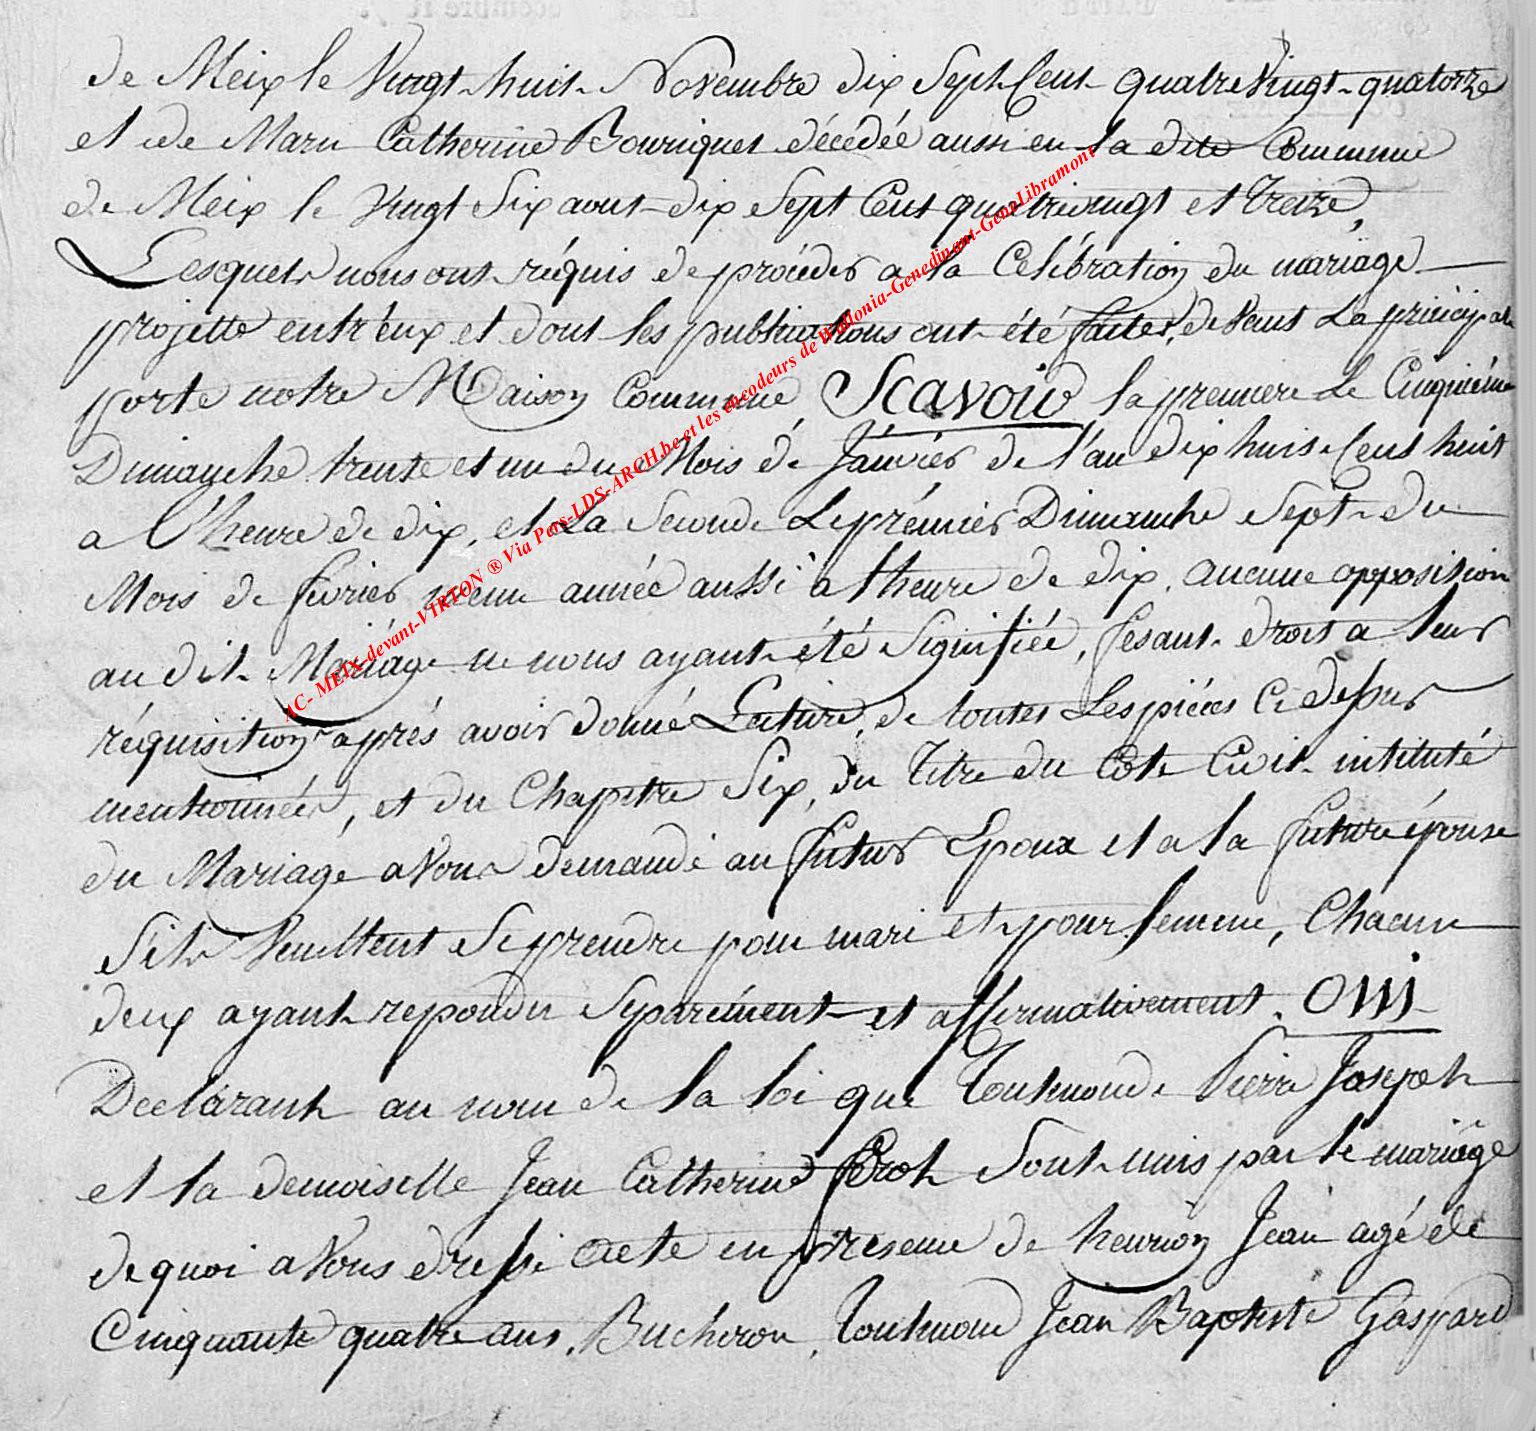 de Meix le Vingt huit Novembre dix Sept Cent quatre Vingt quatorze
et de Marie Catherine Bouriquet décédée aussi en la dite Commune
de Meix le Vingt Six aout dix Sept Cent quatrevingt et treize,
Lesquels nous ont réquis de procéder a la Célébration du mariage
projetté entr'eux et dont les publications ont été faites, devant La principale
porte notre Maison Commune, Scavoir la premiere Le Cinquiéme
Dimanche trente et un du Mois de Janvier de l'an dix huit Cent huit
a l'heure de dix, et La Seconde Le prémier Dimanche Sept du
Mois de fevrier même année aussi a l'heure de dix. aucune opposition
au dit Mariage ne nous ayant été Signifiée, fesant droit a leur
réquisition aprés avoir donné Lecture, de toutes Les piéces Ci dessus
mentionnées, et du Chapitre Six, du Titre du Code Civil intitulé
du Mariage avons demandé au futur Epoux et a la future épouse
S'ils Veullent Se prendre pour mari et pour femme, Chacun
deux ayant repondu Séparément et affirmativement. OUI
Déclarant au nom de la loi que Toutmonde Pierre Joseph
et la demoiselle Jean Catherine ferot Sont unis par le mariage
de quoi avons dressé acte en présence de henrion Jean agé de
Cinquante quatre ans, Bucheron, Toutmond Jean Baptiste Gaspard
AC- MEIX-devant-VIRTON ® Via Pers-LDS-ARCH.be et les encodeurs de Wallonia-Genedinant-GeneLibramont